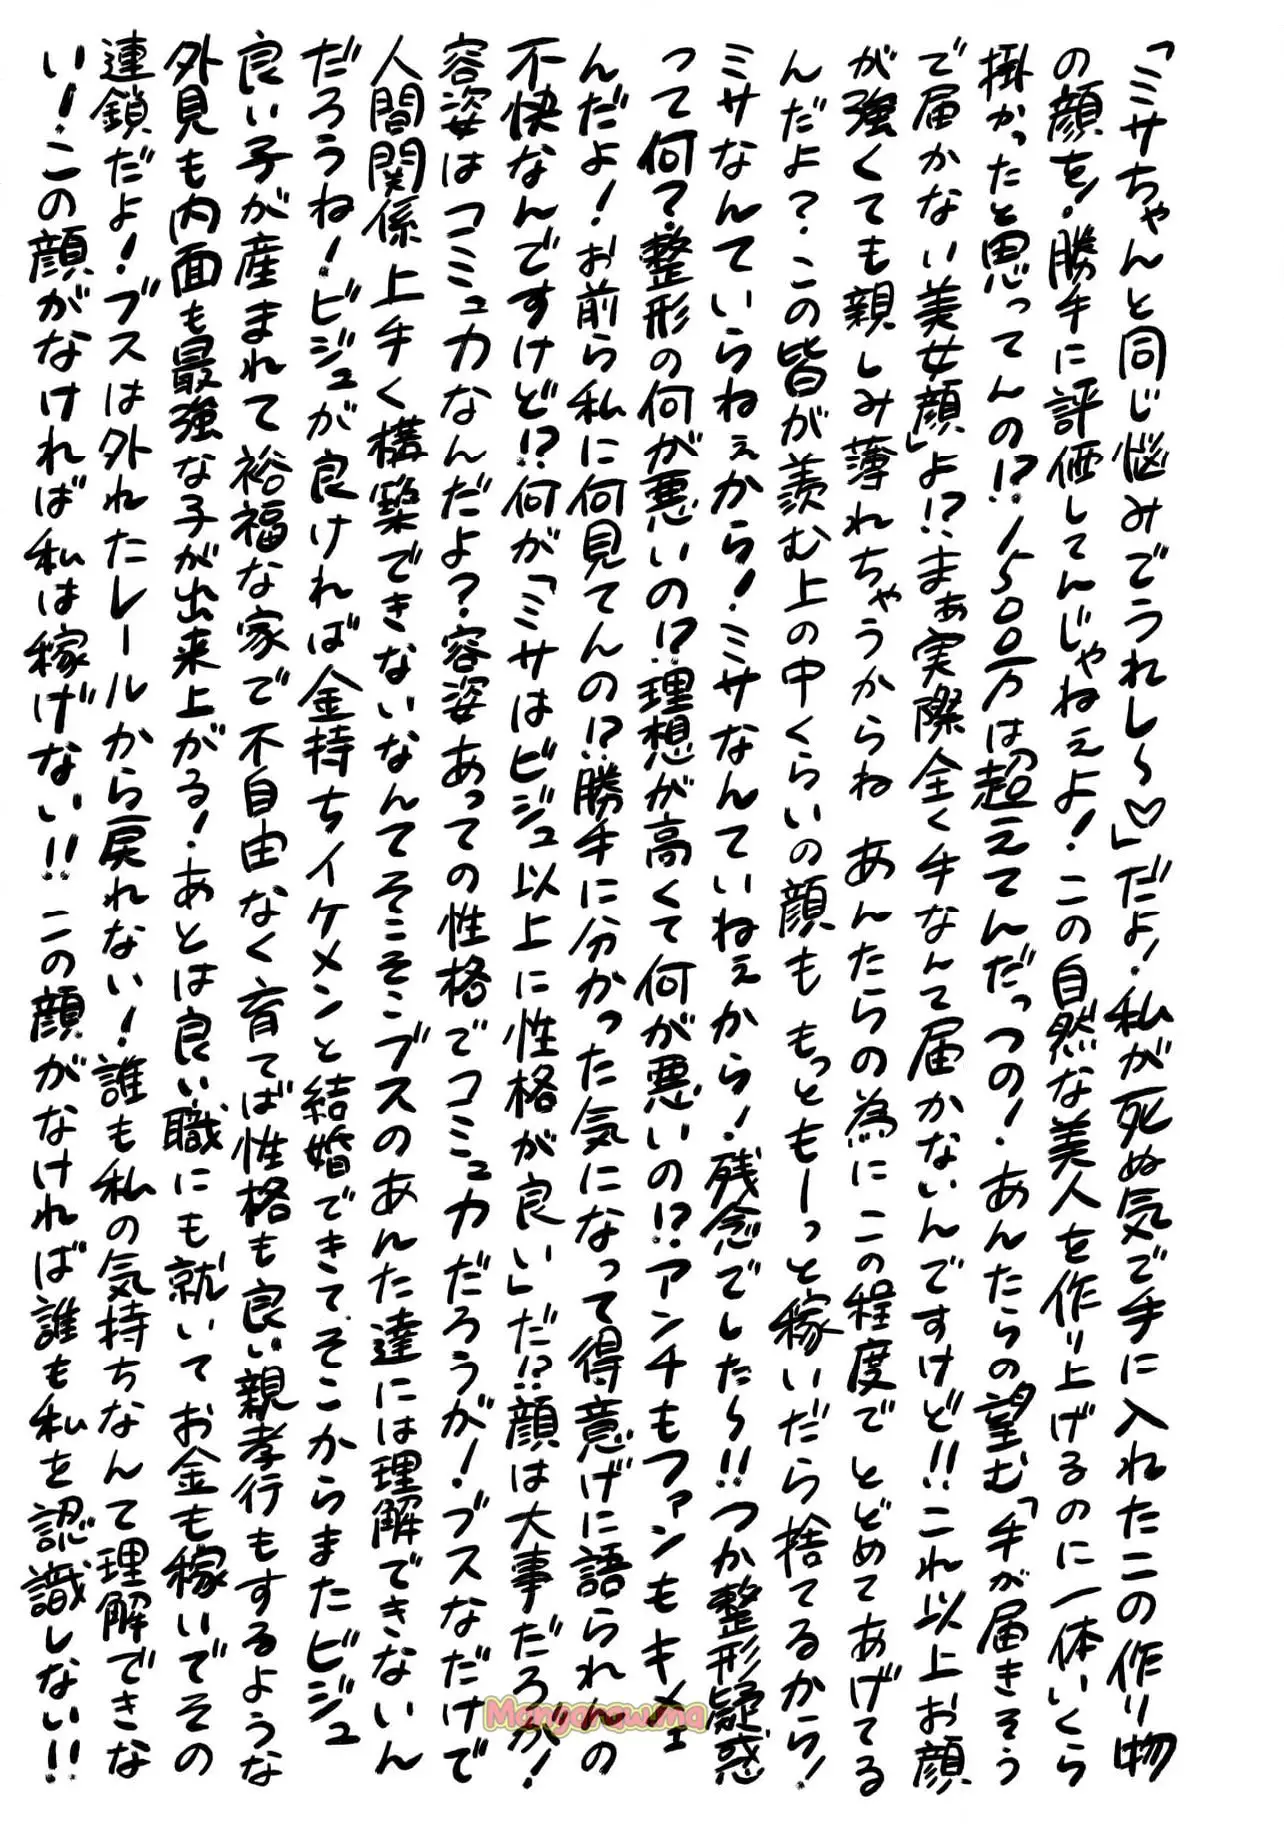 「ミサちゃんと同じ悩みでうれし〜♡」だよ!私が死ぬ気で手に入れたこの作り物
の顔を!勝手に評価してんじゃねぇよ!この自然な美人を作り上げるのに一体いくら
掛かったと思ってんの!?1500万は超えてんだっつの!あんたらの望む「手が届きそう
で届かない美女顔」よ!?まぁ実際全く手なんて届かないんですけど!!これ以上お顔
が強くても親しみ薄れちゃうからね あんたらの為にこの程度でとどめてあげてる
んだよ?この皆が羨む上の中くらいの顔も もっともーっと稼いだら捨てるから!
ミサなんていらねぇから!ミサなんていねぇから!残念でした〜!!つか整形疑惑
って何?整形の何が悪いの!?理想が高くて何が悪いの!?アンチもファンもキメェ
んだよ!お前ら私に何見てんの!?勝手に分かった気になって得意げに語られんの
不快なんですけど!?何が「ミサはビジュ以上に性格が良い」だ!?顔は大事だろが!
容姿はコミュ力なんだよ?容姿あっての性格でコミュ力だろうが!ブスなだけで
人間関係上手く構築できないなんてそこそこブスのあんた達には理解できないん
だろうね!ビジュが良ければ金持ちイケメンと結婚できて、そこからまたビジュ
良い子が産まれて裕福な家で不自由なく育てば性格も良い親孝行もするような
外見も内面も最強な子が出来上がる!あとは良い職にも就いてお金も稼いでその
連鎖だよ!ブスは外れたレールから戻れない!誰も私の気持ちなんて理解できな
い!この顔がなければ私は稼げない!!この顔がなければ誰も私を認識しない!!
Mangaraw.ma